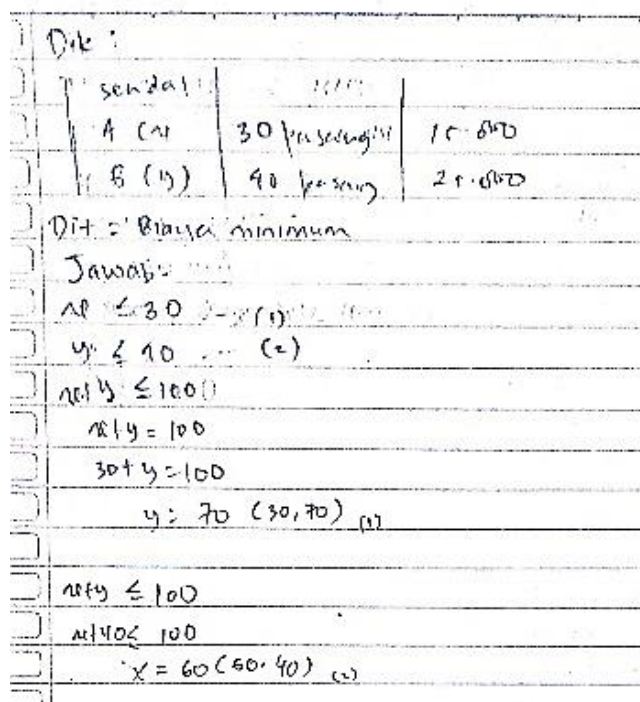 Dik :
sendal
A (x) 30 pasang 15.000
B (y) 40 pasang 25.000
Dit = Biaya minimum
Jawab :
x ≤ 30 (1)
y ≤ 40 ... (2)
x+y ≤ 100
x+y = 100
30+y=100
y= 70 (30,70) (1)
x+y ≤ 100
x+40≤ 100
x = 60 (60.40) (2)